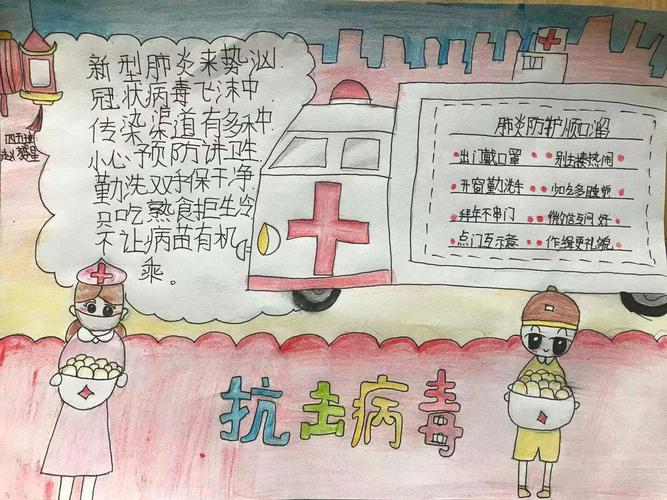 新型肺炎来势汹
冠状病毒飞沫中
传染渠道有多种
小心预防讲卫生
勤洗双手保干净
只吃熟食拒生冷
不让病苗有机
乘。
肺炎防护顺口溜
出门戴口罩 别去凑热闹
开窗勤洗手
拜年不串门 微信互问好
点门互示意 作揖更礼貌
抗击病毒